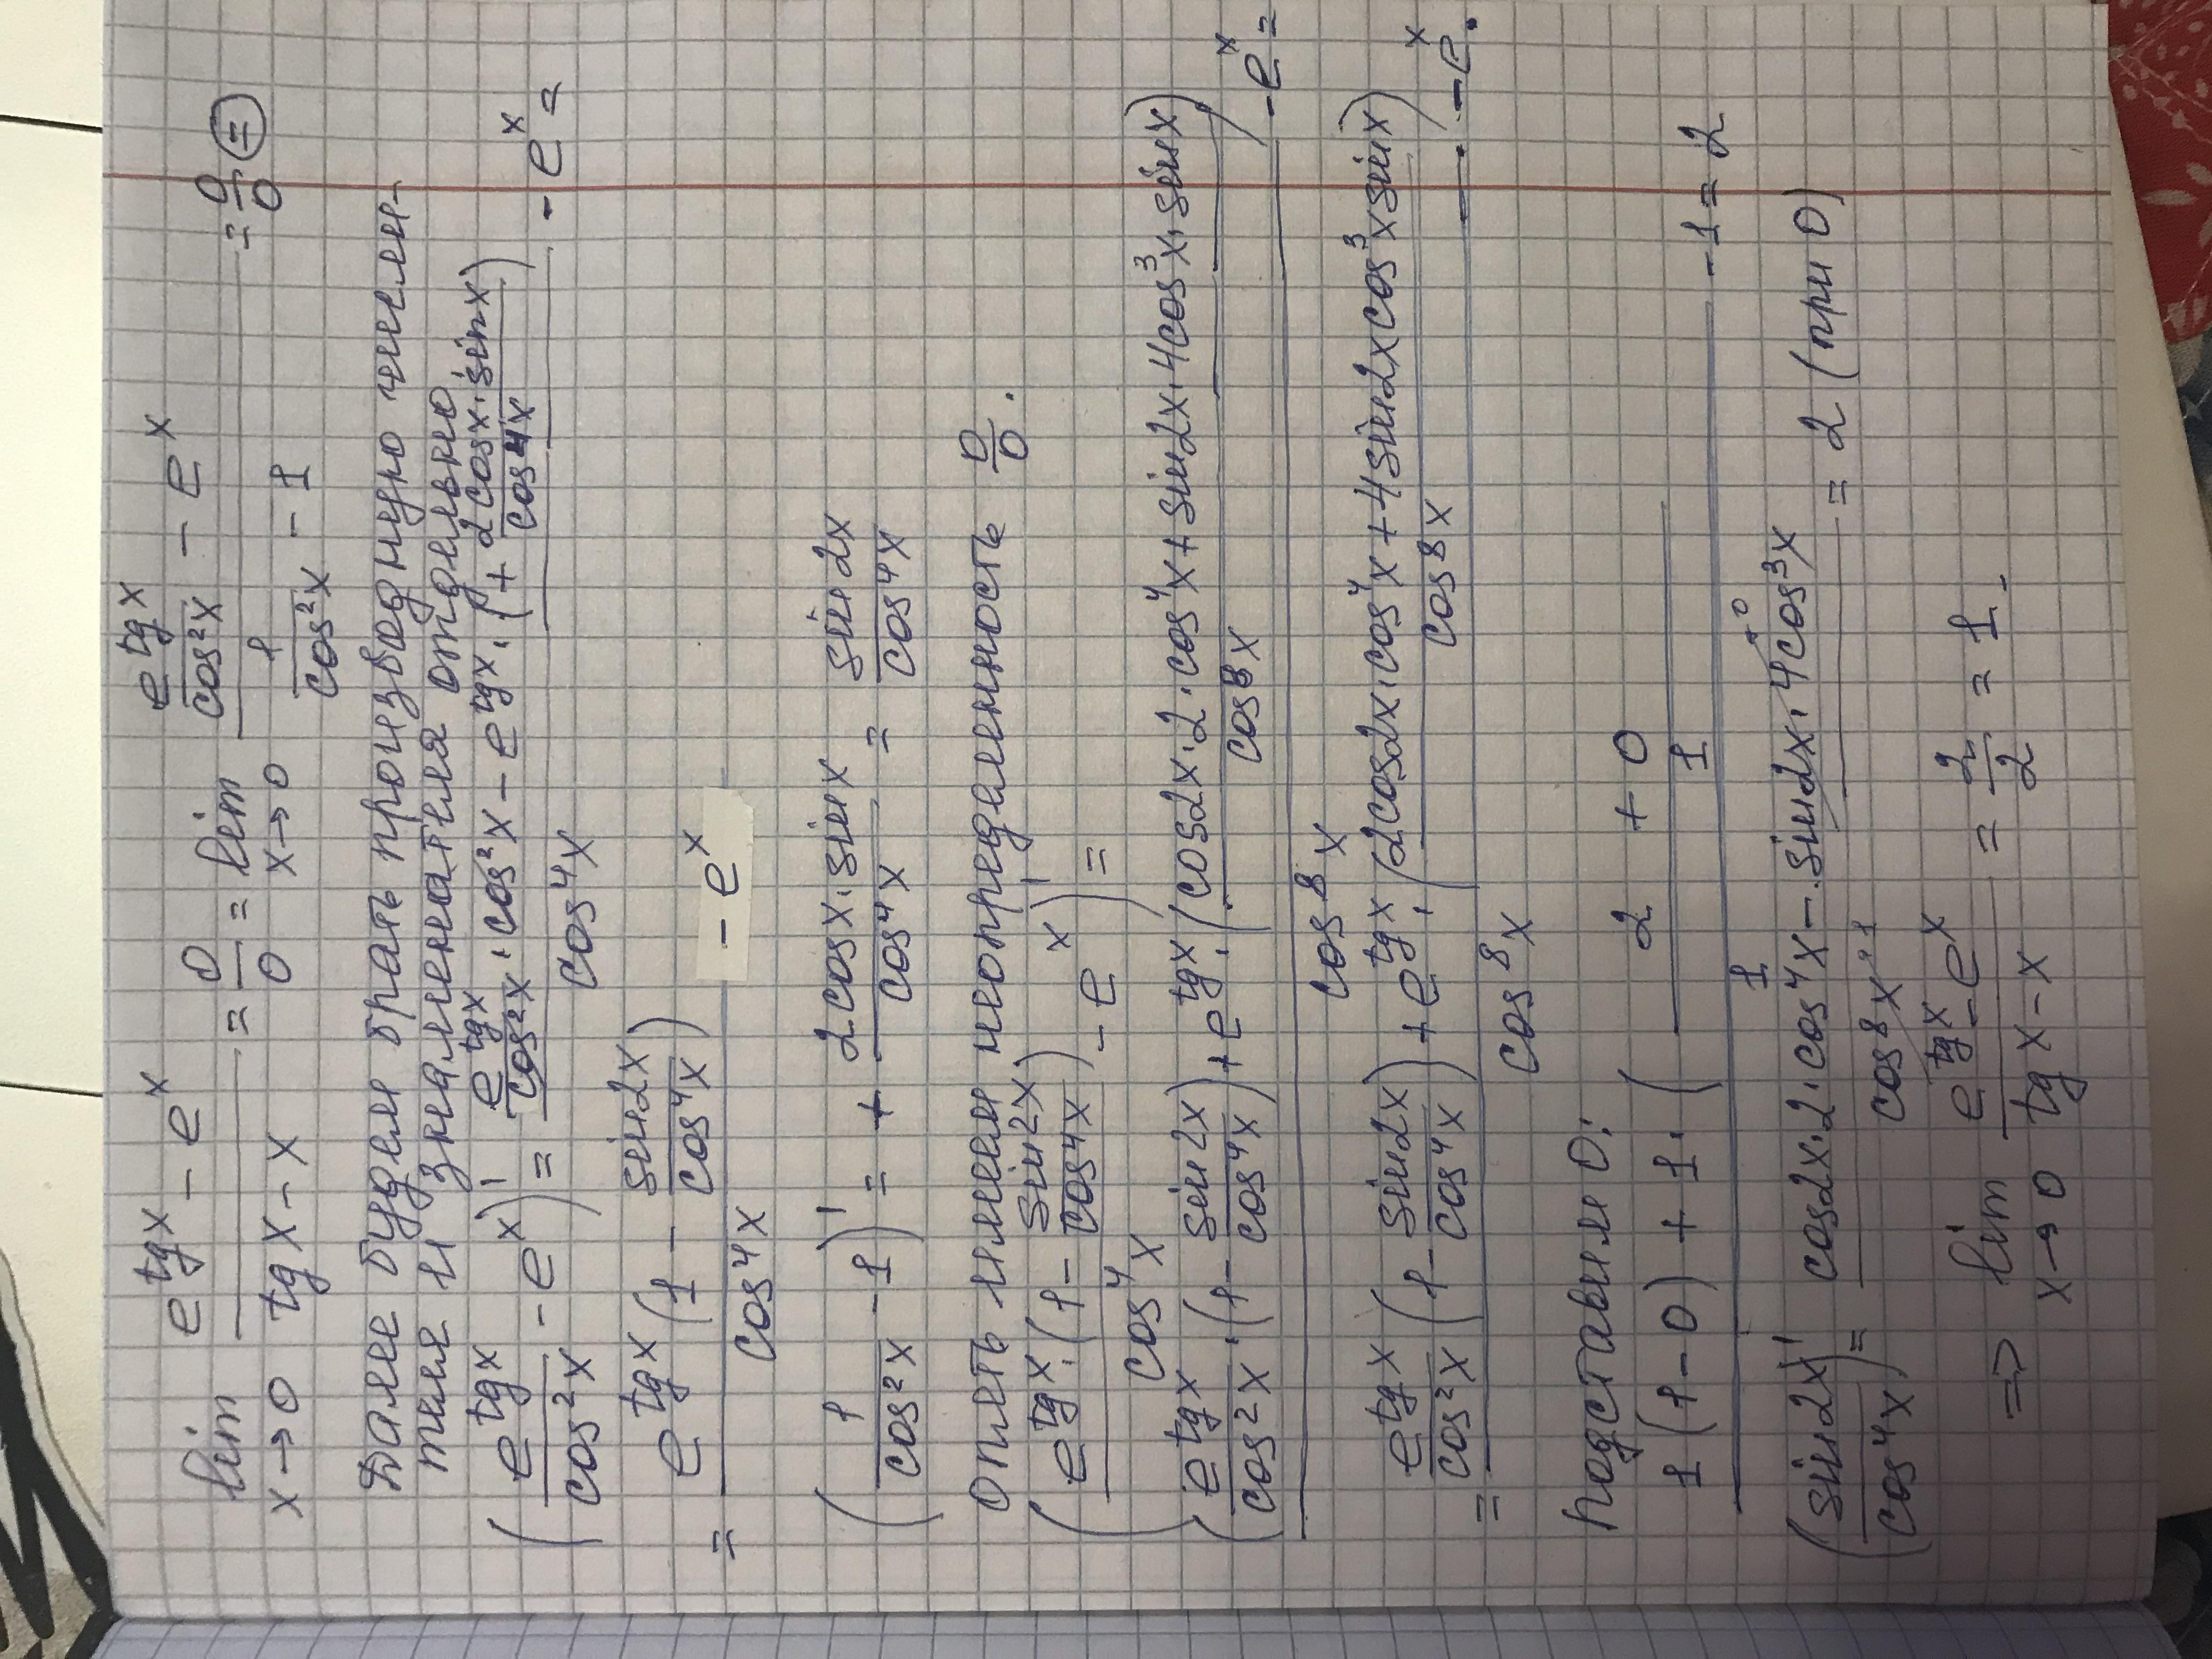 lim x→0 (e^{tg x} − e^x)/(tg x − x) = 0/0 = lim x→0 (e^{tg x}/cos²x − e^x)/(1/cos²x − 1) = 0/0 (=)
Далее будем брать производную числи-
теля и знаменателя отдельно
(e^{tg x}/cos²x − e^x)' = (e^{tg x}/cos²x · cos²x − e^{tg x} · (+ 2cosx·sinx)/cos4x)/cos⁴x − e^x =
= e^{tg x}(1 − sin2x/cos⁴x)/cos⁴x − e^x
(1/cos²x − 1)' = + 2cosx·sinx/cos⁴x = sin2x/cos⁴x
Опять имеем неопределенность 0/0.
(e^{tg x}·(1 − sin2x/cos⁴x)/cos⁴x − e^x)' =
(e^{tg x}/cos²x · (1 − sin2x/cos⁴x) + e^{tg x} · (cos2x·2·cos⁴x + sin2x·4cos³x·sinx)/cos⁸x)/cos⁸x − e^x =
= (e^{tg x}/cos²x (1 − sin2x/cos⁴x) + e^{tg x} · (2cos2x·cos⁴x + 4sin2x cos³x sinx)/cos⁸x)/cos⁸x − e^x.
Подставим 0:
(1(1−0) + 1·((2 + 0)/1))/1 − 1 = 2
(sin2x/cos⁴x)' = (cos2x·2·cos⁴x − sin2x·4cos³x →0)/cos⁸x →1 = 2 (при 0)
=> lim x→0 (e^{tg x} − e^x)/(tg x − x) = 2/2 = 1.